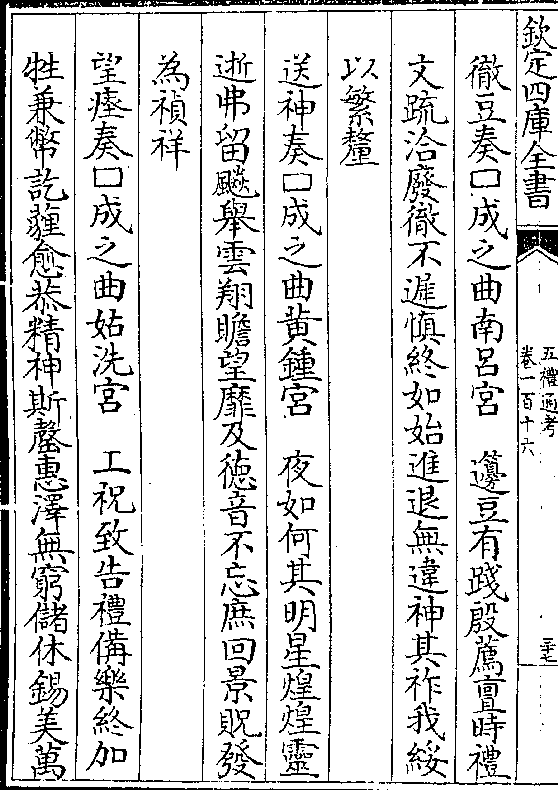 欽定四庫全書
五禮通考
卷一百十六
三十七
徹豆奏□成之曲南呂宮　籩豆有踐殷薦亶時禮
文疏洽廢徹不遲慎終如始進退無違神其祚我綏
以繁釐
送神奏□成之曲黃鍾宮　夜如何其明星煌煌靈
逝弗留飇舉雲翔瞻望靡及德音不忘庶回景貺發
為禎祥
望瘞奏□成之曲姑洗宮　工祝致告禮備樂終加
牲兼幣訖薶愈恭精神斯罄惠澤無窮儲休錫美萬